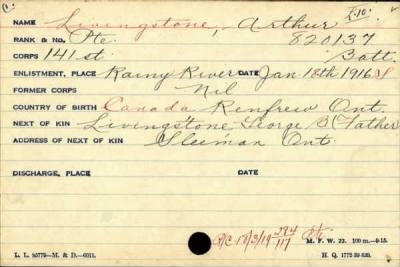 NAME Livingstone, Arthur
RANK & No. Pte. 820137
CORPS 141st. Batt.
ENLISTMENT, PLACE Rainy River DATE Jan 18th 1916
FORMER CORPS Nil
COUNTRY OF BIRTH Canada Renfrew Ont.
NEXT OF KIN Livingstone George B (Father
ADDRESS OF NEXT OF KIN Sleeman Ont.
DISCHARGE, PLACE DATE
R/C 18/3/19 394/117 Pte.
M. F. W. 22. 100 m.—9-15.
L. L. 95779—M. & D.—6011. H. Q. 1772-39-839.